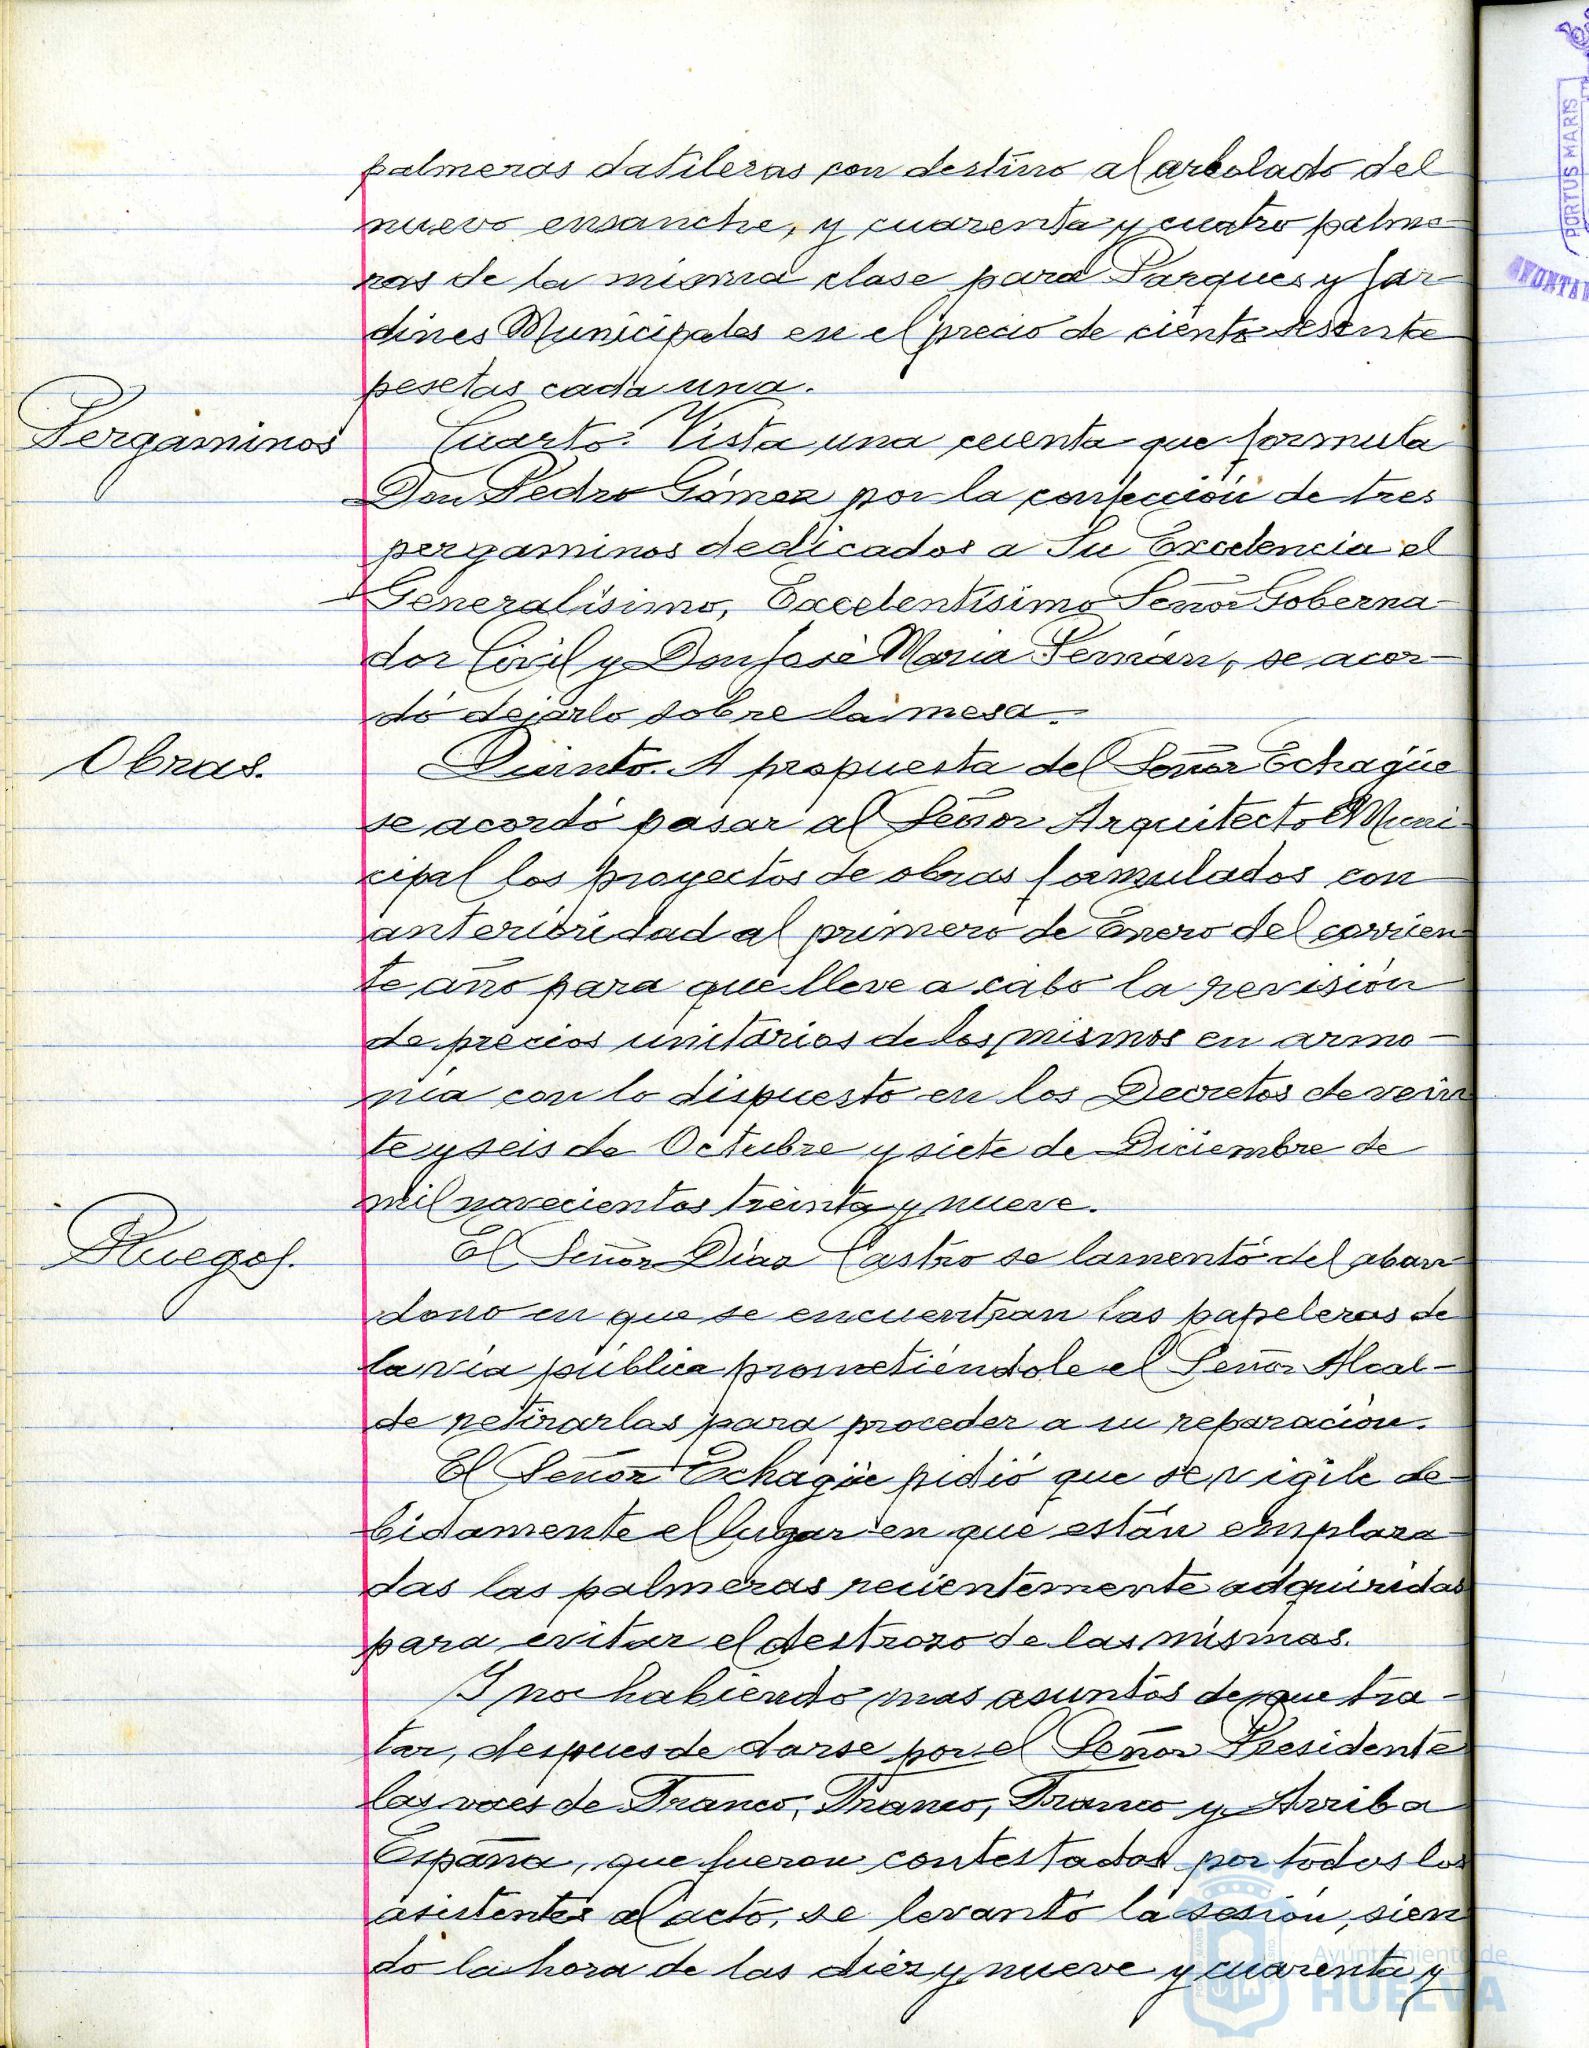 palmeras datileras con destino al arbolado del
nuevo ensanche, y cuarenta y cuatro palme-
ras de la misma clase para Parques y Jar-
dines Municipales en el precio de ciento sesenta
pesetas cada una.
Pergaminos
Cuarto. Vista una cuenta que formula
Don Pedro Gómez por la confección de tres
pergaminos dedicados a Su Excelencia el
Generalísimo, Excelentísimo Señor Goberna-
dor Civil y Don José María Pemán, se acor-
dó dejarlo sobre la mesa.
Obras.
Quinto. A propuesta del Señor Echagüe
se acordó pasar al Señor Arquitecto Muni-
cipal los proyectos de obras formulados con
anterioridad al primero de Enero del corrien
te año para que lleve a cabo la revisión
de precios unitarios de los mismos en armo-
nía con lo dispuesto en los Decretos de vein
te y seis de Octubre y siete de Diciembre de
mil novecientos treinta y nueve.
Ruegos.
El Señor Díaz Castro se lamentó del aban
dono en que se encuentran las papeleras de
la vía pública prometiéndole el Señor Alcal-
de retirarlas para proceder a su reparación.
El Señor Echagüe pidió que se vigile de-
bidamente el lugar en que están emplaza-
das las palmeras recientemente adquiridas
para evitar el destrozo de las mismas.
Y no habiendo mas asuntos de que tra-
tar, despues de darse por el Señor Presidente
las voces de Franco, Franco, Franco y Arriba
España, que fueron contestados por todos los
asistentes al acto, se levantó la sesión, sien
do la hora de las diez y nueve y cuarenta y
PORTUS MARIS
Ayuntamiento de
HUELVA